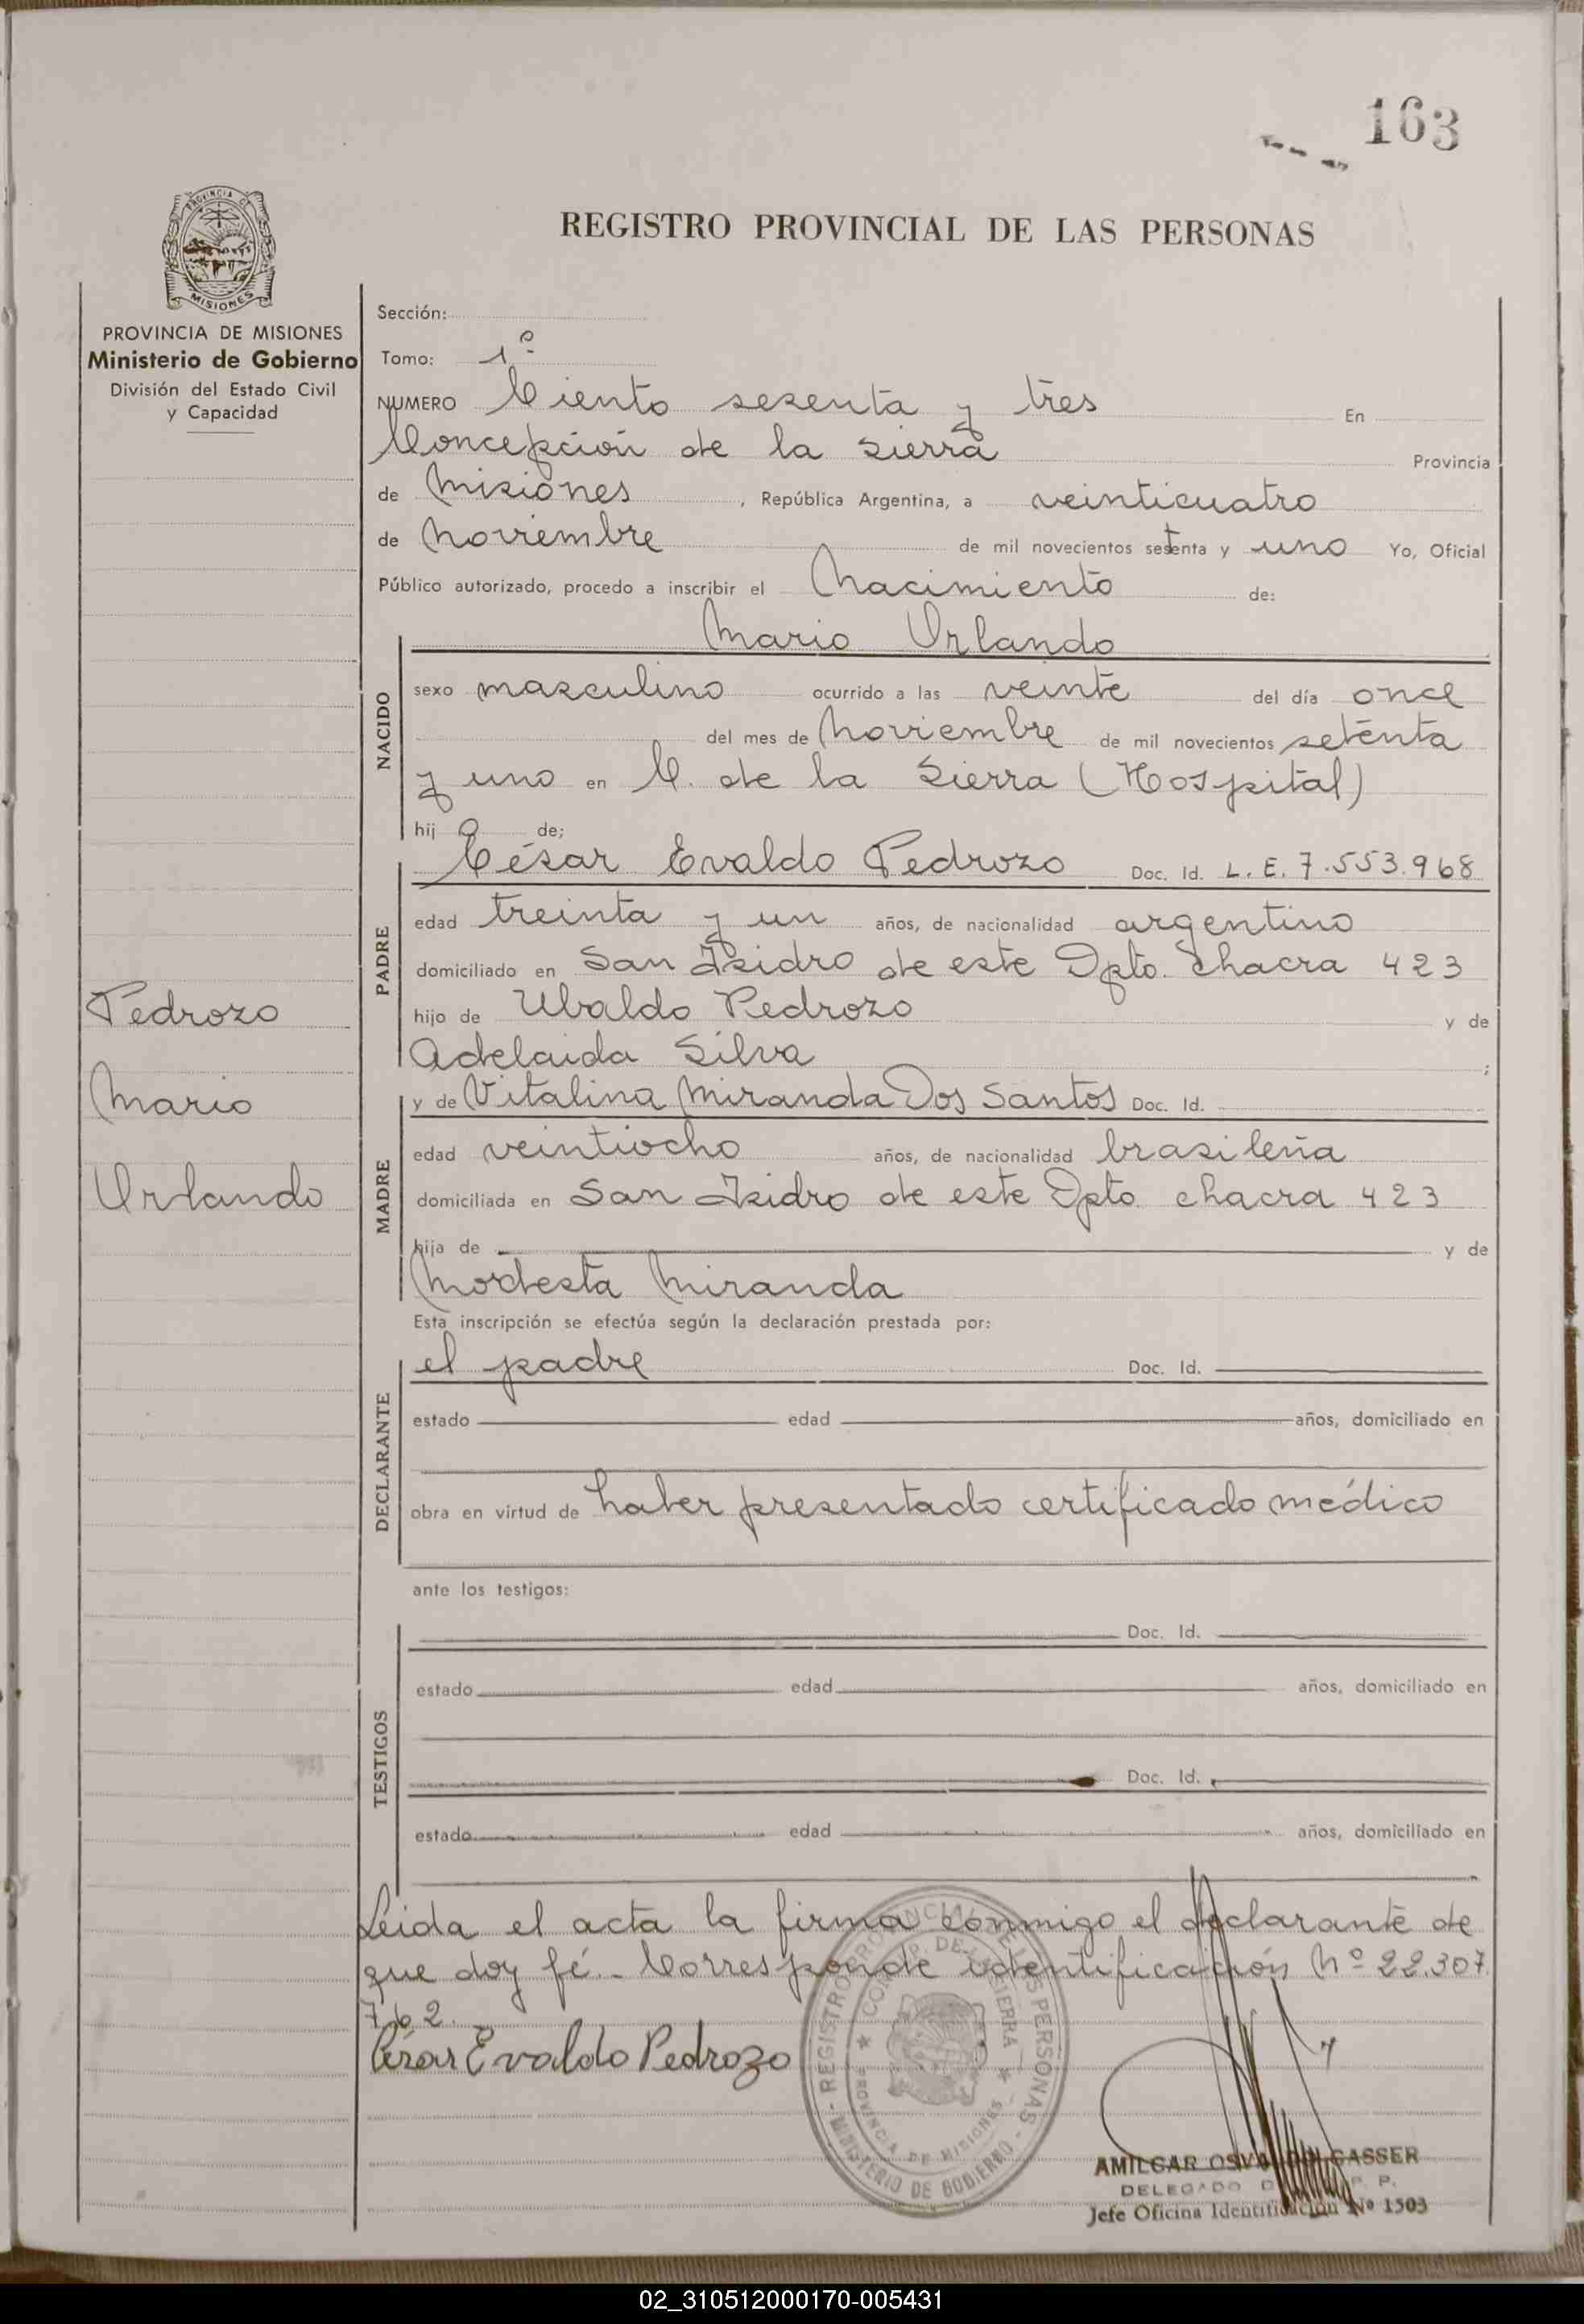 163
REGISTRO PROVINCIAL DE LAS PERSONAS
PROVINCIA DE MISIONES
Ministerio de Gobierno
División del Estado Civil
y Capacidad
Sección:
Tomo: 1º
NUMERO Ciento sesenta y tres En
Concepción de la Sierra Provincia
de Misiones, República Argentina, a veinticuatro
de Noviembre de mil novecientos setenta y uno Yo, Oficial
Público autorizado, procedo a inscribir el Nacimiento de:
Mario Orlando
NACIDO
sexo masculino ocurrido a las veinte del día once
del mes de Noviembre de mil novecientos setenta
y uno en C. de la Sierra (Hospital)
hijo de;
César Evaldo Pedrozo Doc. Id. L. E. 7.553.968
PADRE
edad treinta y un años, de nacionalidad argentino
domiciliado en San Isidro de este Dpto. Chacra 423
hijo de Ubaldo Pedrozo y de
Adelaida Silva ;
y de Vitalina Miranda Dos Santos Doc. Id.
MADRE
edad veintiocho años, de nacionalidad brasileña
domiciliada en San Isidro de este Dpto. chacra 423
hija de y de
Modesta Miranda
Pedrozo
Mario
Orlando
Esta inscripción se efectúa según la declaración prestada por:
el padre Doc. Id.
DECLARANTE
estado edad años, domiciliado en
obra en virtud de haber presentado certificado médico
ante los testigos:
Doc. Id.
TESTIGOS
estado edad años, domiciliado en
Doc. Id.
estado edad años, domiciliado en
Leida el acta la firma conmigo el declarante de
que doy fé.- Corresponde identificación Nº 22.307.
762.
César Evaldo Pedrozo
REGISTRO PROVINCIAL DE LAS PERSONAS
MINISTERIO DE GOBIERNO
CONCEP. DE LA SIERRA
PROVINCIA DE MISIONES
AMILCAR OSVALDO GASSER
DELEGADO P.
Jefe Oficina Identificación Nº 1503
02_310512000170-005431